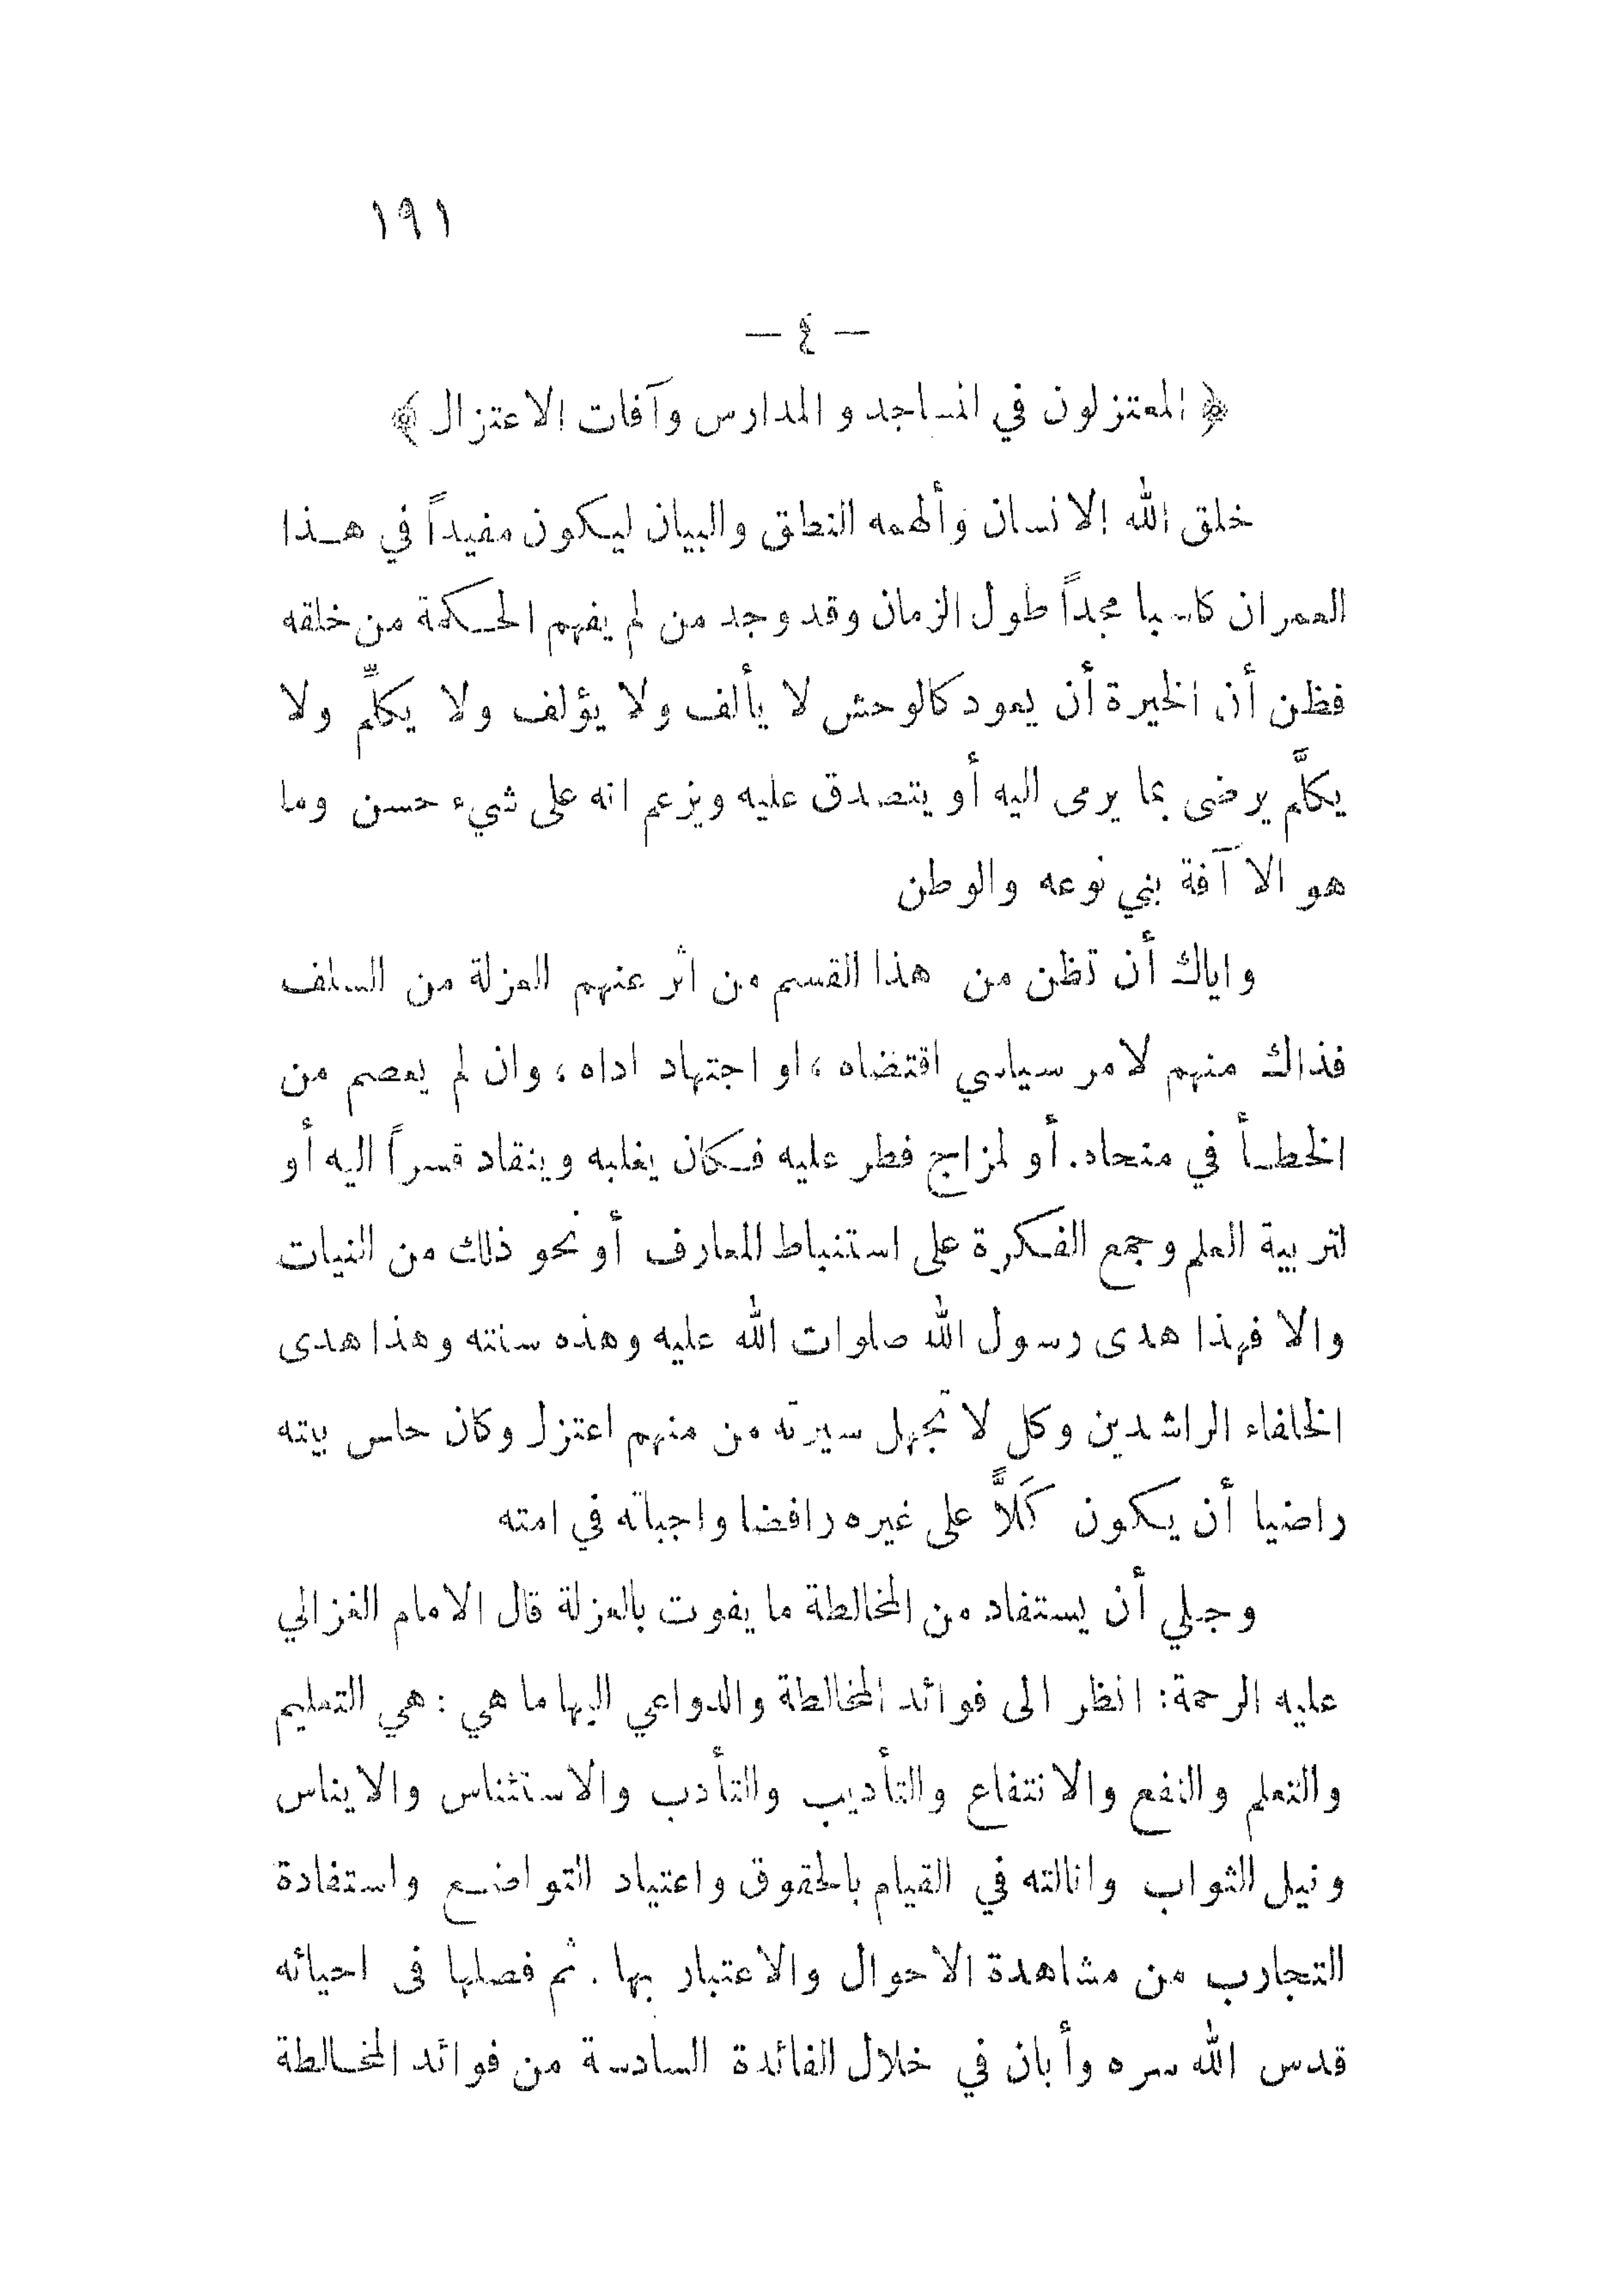 ١٩١
— ٤ —
﴿ المعتزلون في المساجد و المدارس وآفات الاعتزال ﴾
خلق الله الانسان وألهمه النطق والبيان ليكون مفيداً في هذا
العمران كاسبا مجداً طول الزمان وقد وجد من لم يفهم الحكمة من خلقه
فظن أن الخيرة أن يعود كالوحش لا يألف ولا يؤلف ولا يكلِّم ولا
يكلَّم يرضى بما يرمى اليه أو يتصدق عليه ويزعم انه على شيء حسن وما
هو الا آفة بني نوعه والوطن
واياك أن تظن من هذا القسم من اثر عنهم العزلة من السلف
فذاك منهم لامر سياسي اقتضاه ، او اجتهاد اداه ، وان لم يعصم من
الخطأ في منحاه. أو لمزاج فطر عليه فكان يغلبه وينقاد قسراً اليه أو
لتربية العلم وجمع الفكرة على استنباط المعارف أو نحو ذلك من النيات
والا فهذا هدى رسول الله صلوات الله عليه وهذه سنته وهذا هدى
الخلفاء الراشدين وكل لا تجهل سيرته من منهم اعتزل وكان حلس بيته
راضيا أن يكون كَلاًّ على غيره رافضا واجباته في امته
وجلي أن يستفاد من المخالطة ما يفوت بالعزلة قال الامام الغزالي
عليه الرحمة: انظر الى فوائد المخالطة والدواعي اليها ما هي : هي التعليم
والتعلم والنفع والانتفاع والتأديب والتأدب والاستئناس والايناس
ونيل الثواب وانالته في القيام بالحقوق واعتياد التواضع واستفادة
التجارب من مشاهدة الاحوال والاعتبار بها . ثم فصلها فى احيائه
قدس الله سره وأبان في خلال الفائدة السادسة من فوائد المخالطة